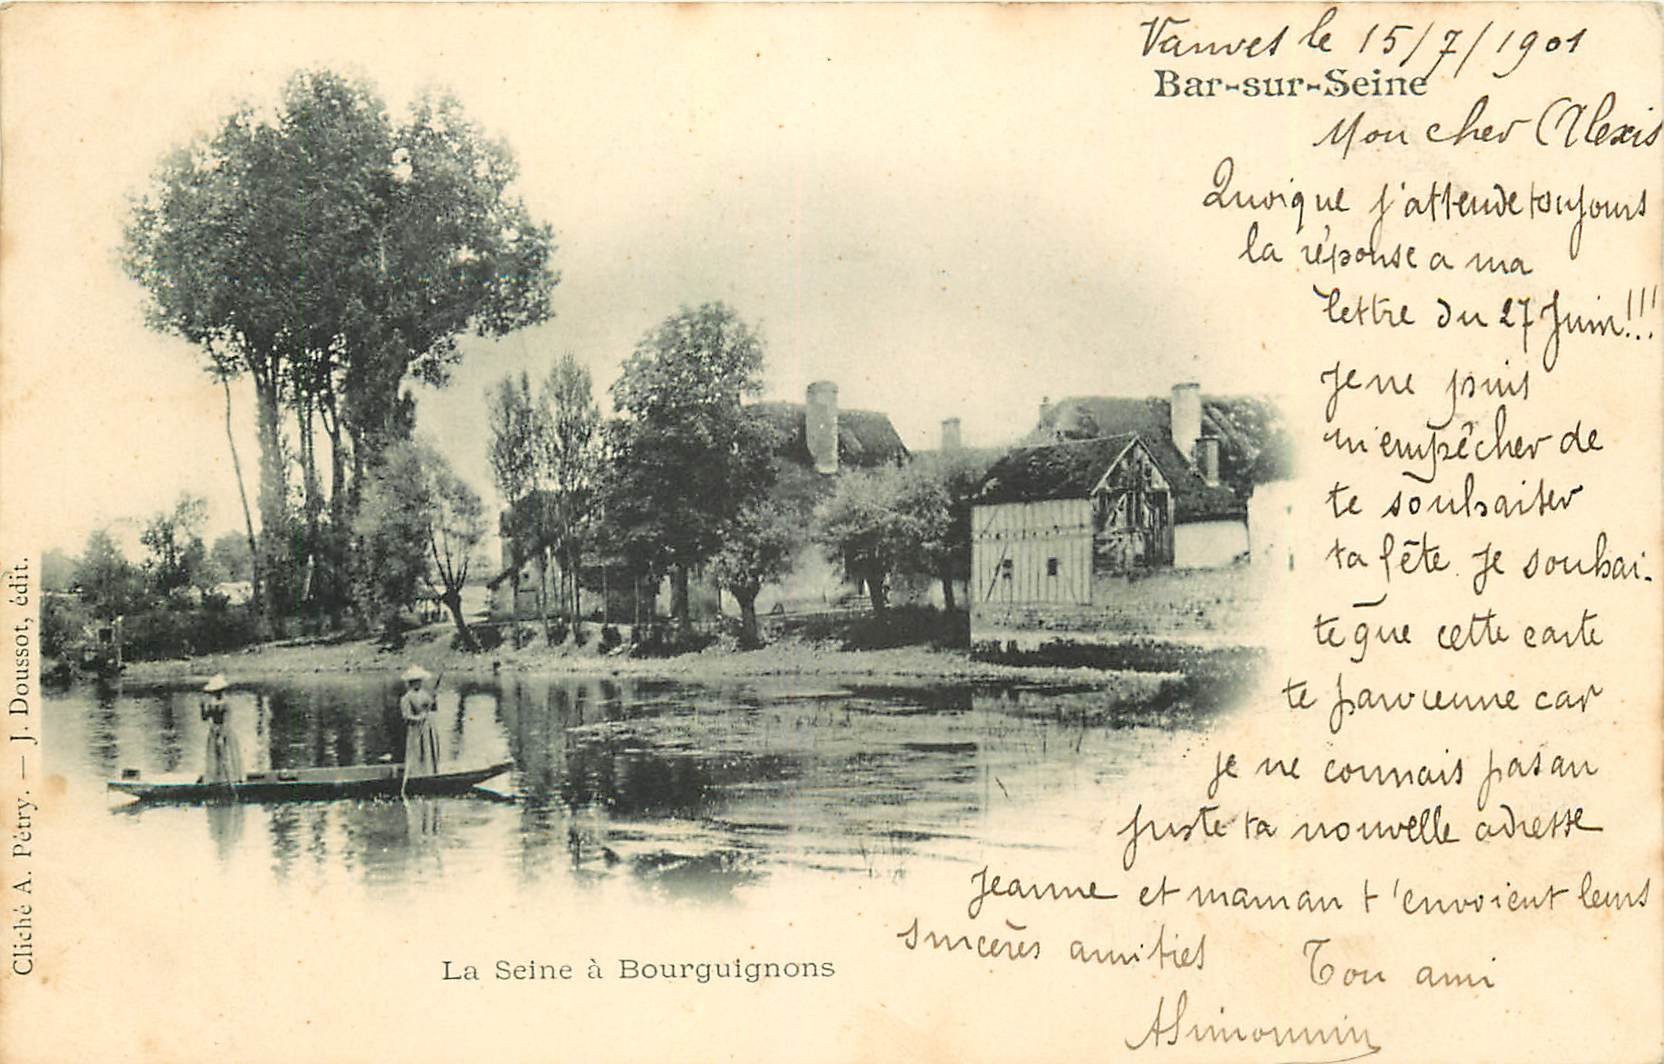 Vanves le 15/7/1901
Bar-sur-Seine
Mon cher Alexis
Quoique j'attende toujours
la réponse a ma
lettre du 27 Juin!!!
je ne puis
m'empêcher de
te souhaiter
ta fête. Je souhai-
te que cette carte
te parvienne car
je ne connais pas au
juste ta nouvelle adresse
Jeanne et maman t'envoient leurs
sincères amitiés Ton ami
ASimonnin
La Seine à Bourguignons
Cliché A. Pétry. — J. Doussot, édit.